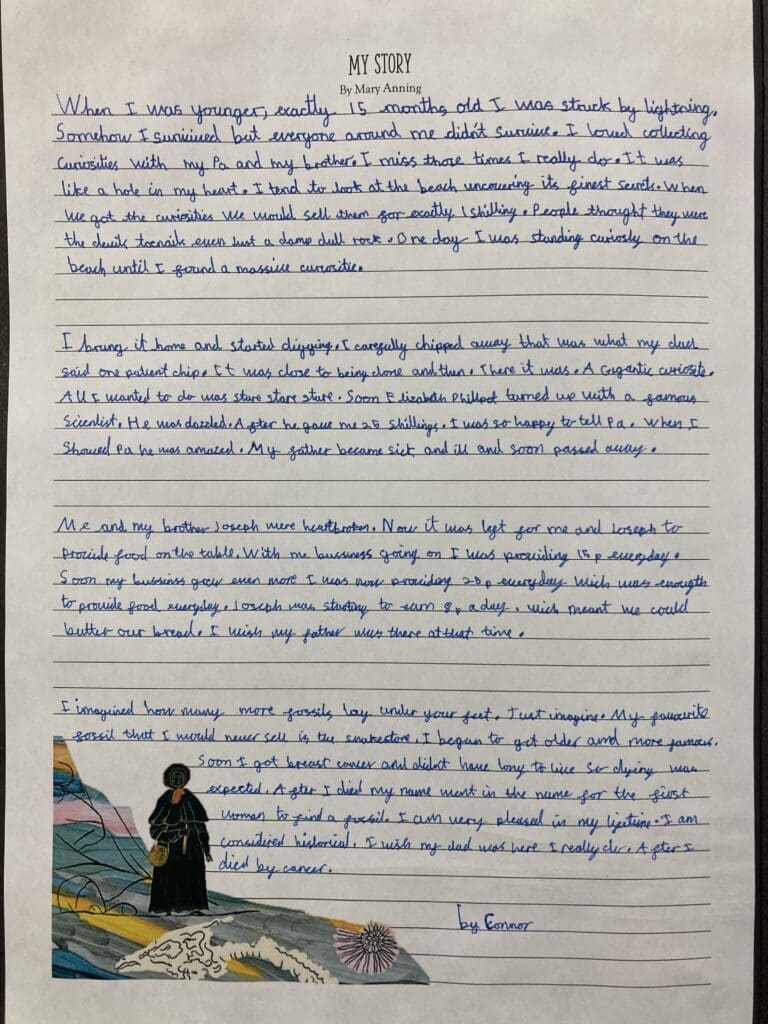 MY STORY
By Mary Anning
When I was younger, exactly 15 months old I was struck by lightning.
Somehow I surivived but everyone around me didn't survive. I loved collecting
curiosities with my Pa and my brother. I miss those times I really do. It was
like a hole in my heart. I tend to look at the beach uncovering its finest secrets. When
we got the curiosities we would sell them for exactly 1 shilling. People thought they were
the devils toenails even just a damp dull rock. One day I was standing curiosly on the
beach until I found a massive curiositie.
I brung it home and started digging. I carefully chipped away that was what my dad
said one patient chip. It was close to being done and then. There it was. A Gigantic curiosite.
All I wanted to do was stare stare stare. Soon Elizabeth Philpot turned up with a famous
scientist. He was dazzled. After he gave me 25 shillings. I was so happy to tell Pa. When I
showed Pa he was amazed. My father became sick and ill and soon passed away.
Me and my brother Joseph were heartbroken. Now it was left for me and Joseph to
provide food on the table. With me bussiness going on I was providing 15p everyday.
Soon my bussinss grew even more I was now providing 20p everyday wich was enougth
to provide food everyday. Joseph was starting to earn 8p a day. wich meant we could
butter our bread. I wish my father was there at that time.
I imagined how many more fossils lay under your feet. Just imagine. My favourite
fossil that I would never sell is the snakestone. I began to get older and more famous.
Soon I got breast cancer and didn't have long to live so dying was
expected. After I died my name went in the name for the first
woman to find a fossil. I am very pleased in my lifetime. I am
considered historical. I wish my dad was here I really do. After I
died by cancer.
by Connor